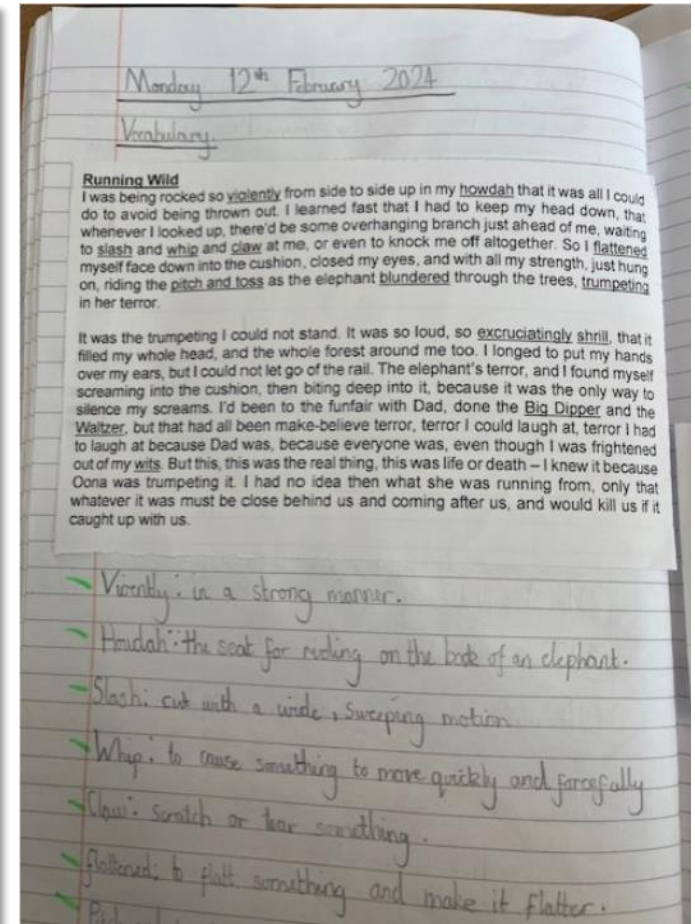 Monday 12th February 2024
Vocabulary.
Running Wild
I was being rocked so violently from side to side up in my howdah that it was all I could
do to avoid being thrown out. I learned fast that I had to keep my head down, that
whenever I looked up, there'd be some overhanging branch just ahead of me, waiting
to slash and whip and claw at me, or even to knock me off altogether. So I flattened
myself face down into the cushion, closed my eyes, and with all my strength, just hung
on, riding the pitch and toss as the elephant blundered through the trees, trumpeting
in her terror.
It was the trumpeting I could not stand. It was so loud, so excruciatingly shrill, that it
filled my whole head, and the whole forest around me too. I longed to put my hands
over my ears, but I could not let go of the rail. The elephant's terror, and I found myself
screaming into the cushion, then biting deep into it, because it was the only way to
silence my screams. I'd been to the funfair with Dad, done the Big Dipper and the
Waltzer, but that had all been make-believe terror, terror I could laugh at, terror I had
to laugh at because Dad was, because everyone was, even though I was frightened
out of my wits. But this, this was the real thing, this was life or death – I knew it because
Oona was trumpeting it. I had no idea then what she was running from, only that
whatever it was must be close behind us and coming after us, and would kill us if it
caught up with us.
: in a strong manner.
Howdah: the seat for riding on the back of an elephant.
Slash: cut with a wide, sweeping motion.
Whip: to cause something to move quickly and forcefully
Claw: scratch or tear something.
flattened: to flatt something and make it flatter.